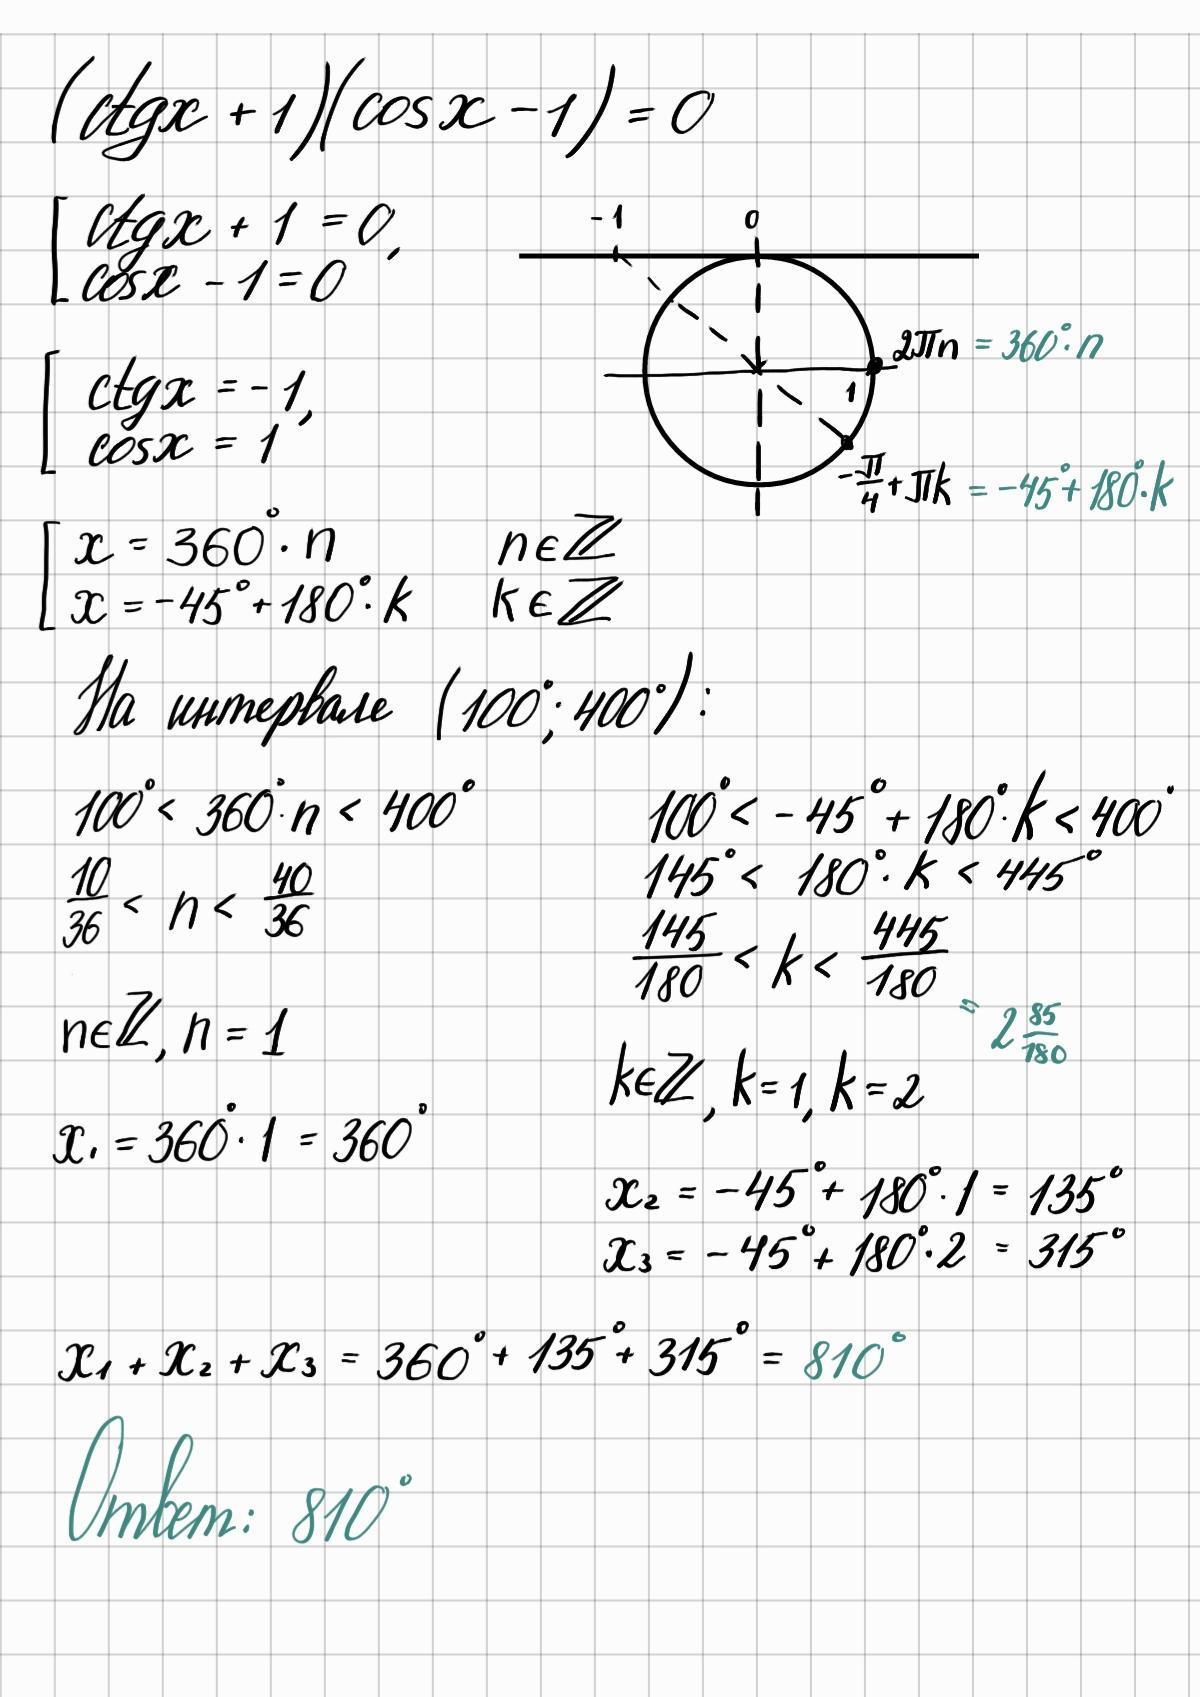 (ctgx + 1)(cosx - 1) = 0
ctgx + 1 = 0,
cosx - 1 = 0
-1 0
2πn = 360°·n
1
-π/4 + πk = -45° + 180°·k
ctgx = -1,
cosx = 1
x = 360°·n n∈ℤ
x = -45° + 180°·k k∈ℤ
На интервале (100°; 400°):
100° < 360°·n < 400°
10/36 < n < 40/36
n∈ℤ, n = 1
x₁ = 360°·1 = 360°
100° < -45° + 180°·k < 400°
145° < 180°·k < 445°
145/180 < k < 445/180
= 2 85/180
k∈ℤ, k = 1, k = 2
x₂ = -45° + 180°·1 = 135°
x₃ = -45° + 180°·2 = 315°
x₁ + x₂ + x₃ = 360° + 135° + 315° = 810°
Ответ: 810°